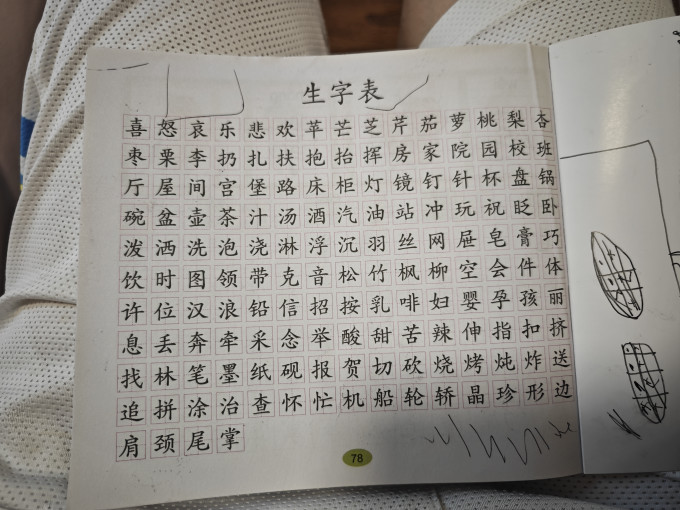 生字表
喜怒哀乐悲欢苹芒芝芹茄萝桃梨杏
枣栗李扔扎扶抱抬挥房家院园校班
厅屋间宫堡路床柜灯镜钉针杯盘锅
碗盆壶茶汁汤酒汽油站冲玩祝眨卧
泼洒洗泡浇淋浮沉羽丝网屉皂膏巧
饮时图领带克音松竹枫柳空会件体
许位汉浪铅信招按乳啡妇婴孕孩丽
息丢奔牵采念举酸甜苦辣伸指扣挤
找林笔墨纸砚报贺切砍烧烤炖炸送
追拼涂治查怀忙机船轮轿晶珍形边
肩颈尾掌
78